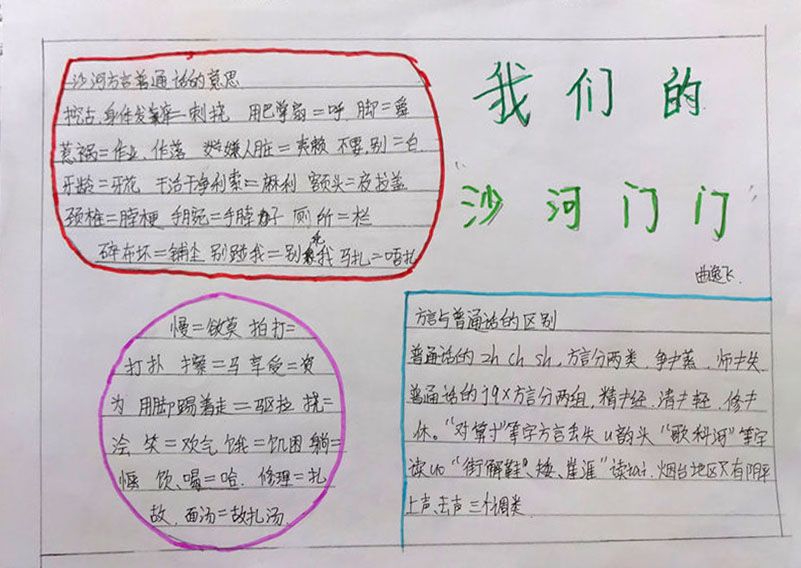 我们的
沙河门门
曲逸飞
沙河方言普通话的意思
刺挠 用巴掌扇=呼 脚=
惹祸=作业、作落 嫌人脏= 不要,别=白
牙龄=牙花 干活干净利索=麻利 额头=夜拉盖
颈椎=脖梗 手腕=手脖子 厕所=栏
碎布坏=铺尘 别踏我=别 我 马扎=唔扎
慢= 莫 拍打=
打扑 擦=马 享受=资
为 用脚踢着走=驱拉 挠=
㧟 笑=欢气 饿=饥困 躺=
饮、喝=哈. 修理=扎
故. 面汤=故扎汤.
方言与普通话的区别
普通话的 zh ch sh, 方言分两类, 争≠蒸, 师≠失
普通话的 j q x 方言分两组, 精≠经, 清≠轻, 修≠
休。“对算寸”等字方言丢失 u 韵头 “歌科河”等字
读uo “街解鞋、矮、崖涯”读iai. 烟台地区只有阴平
上声、去声 三个调类